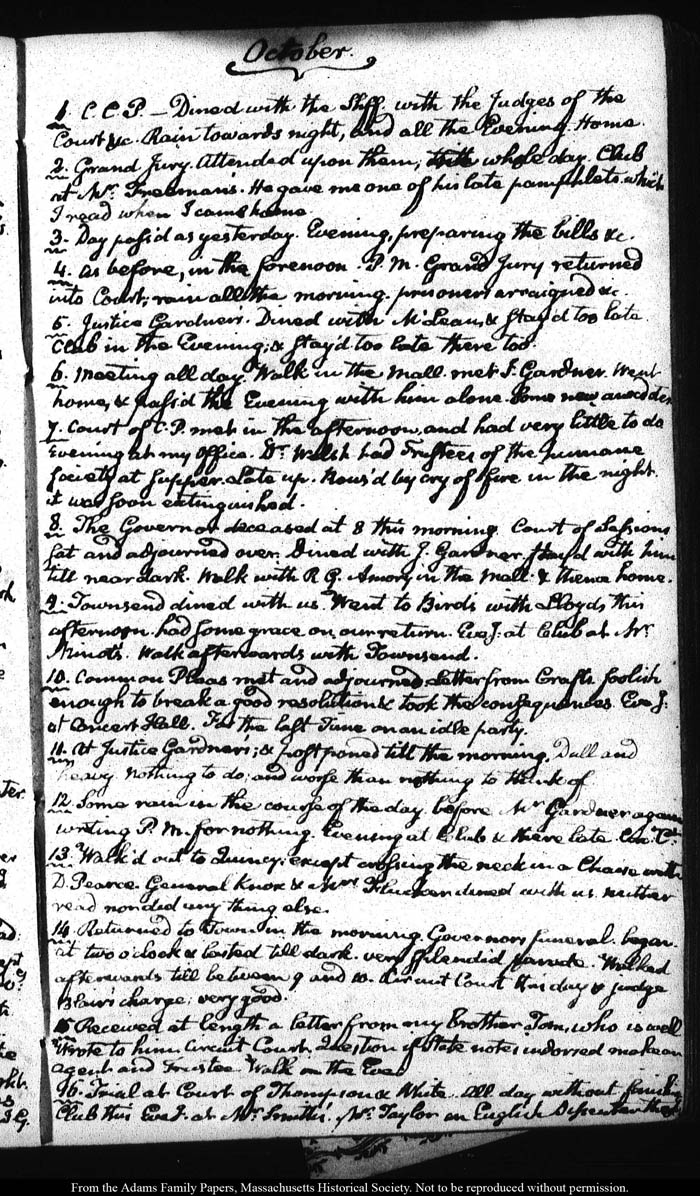 October.
1. C. C. P. — Dined with the Shff. with the Judges of the
Court &c. Rain towards night, and all the Evening. Home.
2. Grand Jury. Attended upon them, whole day. Club
at Mr. Freeman's. He gave me one of his late pamphlets which
I read when I came home
3. Day pass'd as yesterday. Evening, preparing the bills &c.
4. As before, in the forenoon. P. M. Grand Jury returned
into Court; rain all the morning. prisoners arraigned &c.
5. Justice Gardner's. Dined with McLean, & stay'd too late.
Club in the Evening; & stay'd too late there too.
6. Meeting all day. Walk in the mall. met J. Gardner. Went
home, & pass'd the Evening with him alone. Some new anecdotes
7. Court of C. P. met in the afternoon, and had very little to do
Evening at my office. Dr. Welsh had Trustees of the humane
Society at supper. Late up. Rous'd by cry of fire in the night.
it was soon extinguished.
8. The Governor deceased at 8 this morning. Court of Sessions
sat and adjourned over. Dined with J. Gardner. stay'd with him
till near dark. Walk with R G. Amory in the Mall. & thence home.
9. Townsend dined with us. Went to Bird's with Lloyd, this
afternoon. had some grace on our return. Eveg. at Club at Mr.
Minot's. Walk afterwards with Townsend.
10. Common Pleas met and adjourned. Letter from Crafts foolish
enough to break a good resolution & took the consequences. Eveg.
at Concert Hall. For the last Time on an idle party.
11. At Justice Gardner's; & postponed till the morning. Dull and
heavy. nothing to do; and worse than nothing to think of
12. Some rain in the course of the day. before Mr. Gardner again
writing P. M. for nothing. Evening at Club & there late.
13. Walk'd out to Quincy: except crossing the neck in a Chaise with
D. Pearce. General Knox & Mrs. Flucker dined with us. neither
read nor did any thing else.
14. Returned to Town in the morning. Governors funeral. began
at two o'clock & lasted till dark. very splendid parade. Walked
afterwards till between 9 and 10. Circuit Court this day & judge
Blair's charge; very good.
15 Received at length a letter from my brother Tom, who is well
Wrote to him. Circuit Court. Question if State notes indorsed make an
agent and Trustee. Walk in the Eve.
16. Trial at Court of Thompson & White. All day without
Club this Eveg. at Mr. Smith's. Mr. Taylor an English Dissenter there
From the Adams Family Papers, Massachusetts Historical Society. Not to be reproduced without permission.